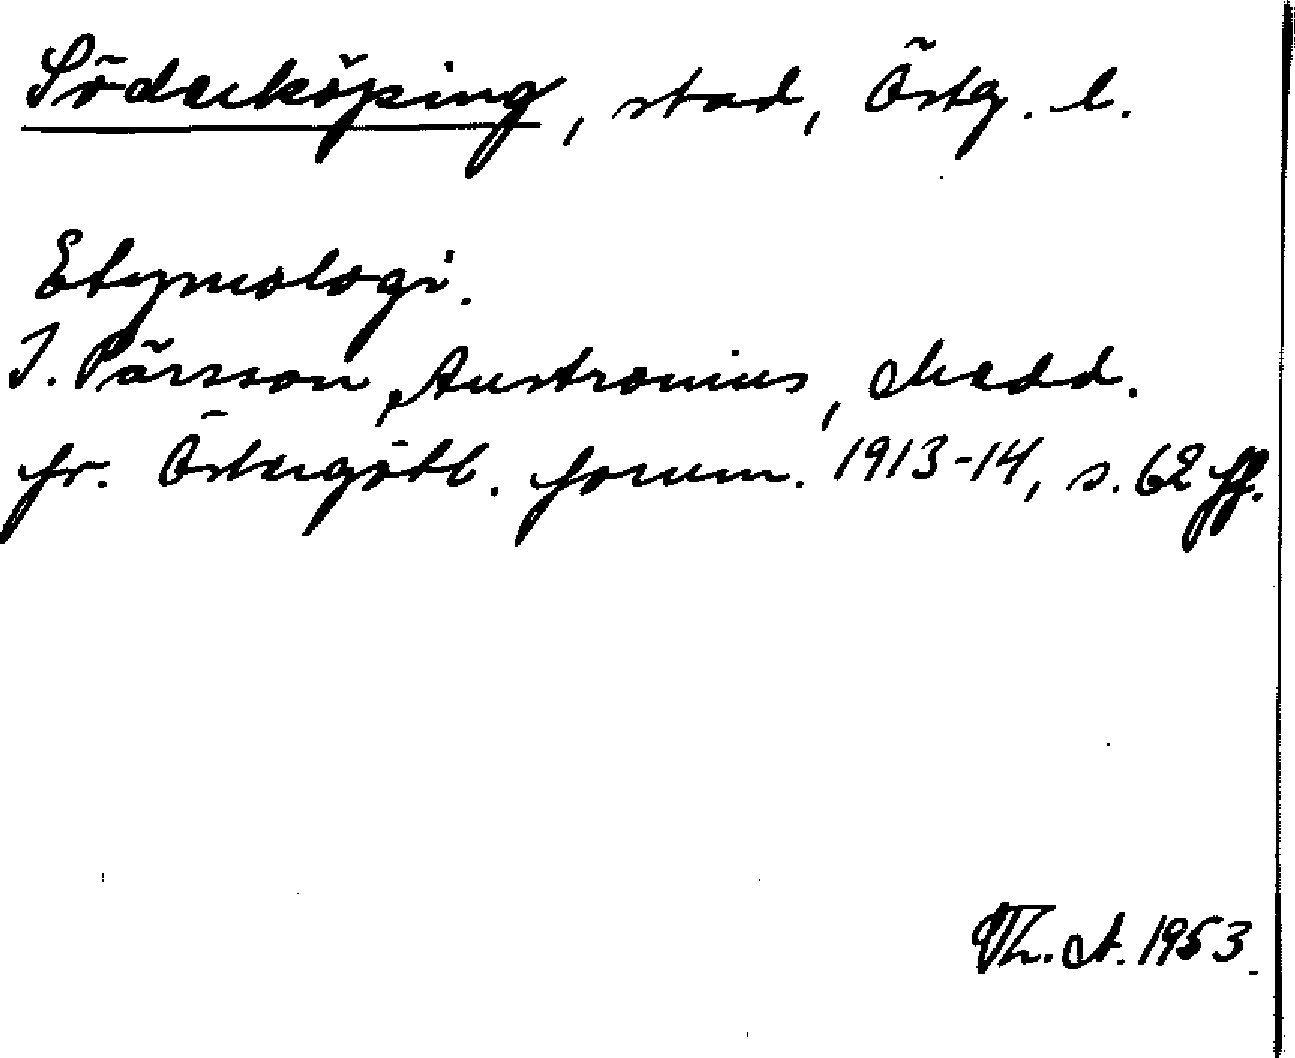 Söderköping, stad, Östg. l.
Etymologi.
I. Pärsson, Austronius, Medd.
fr. Östergötl. fornm. 1913-14, s. 62 ff.
Th. A. 1953